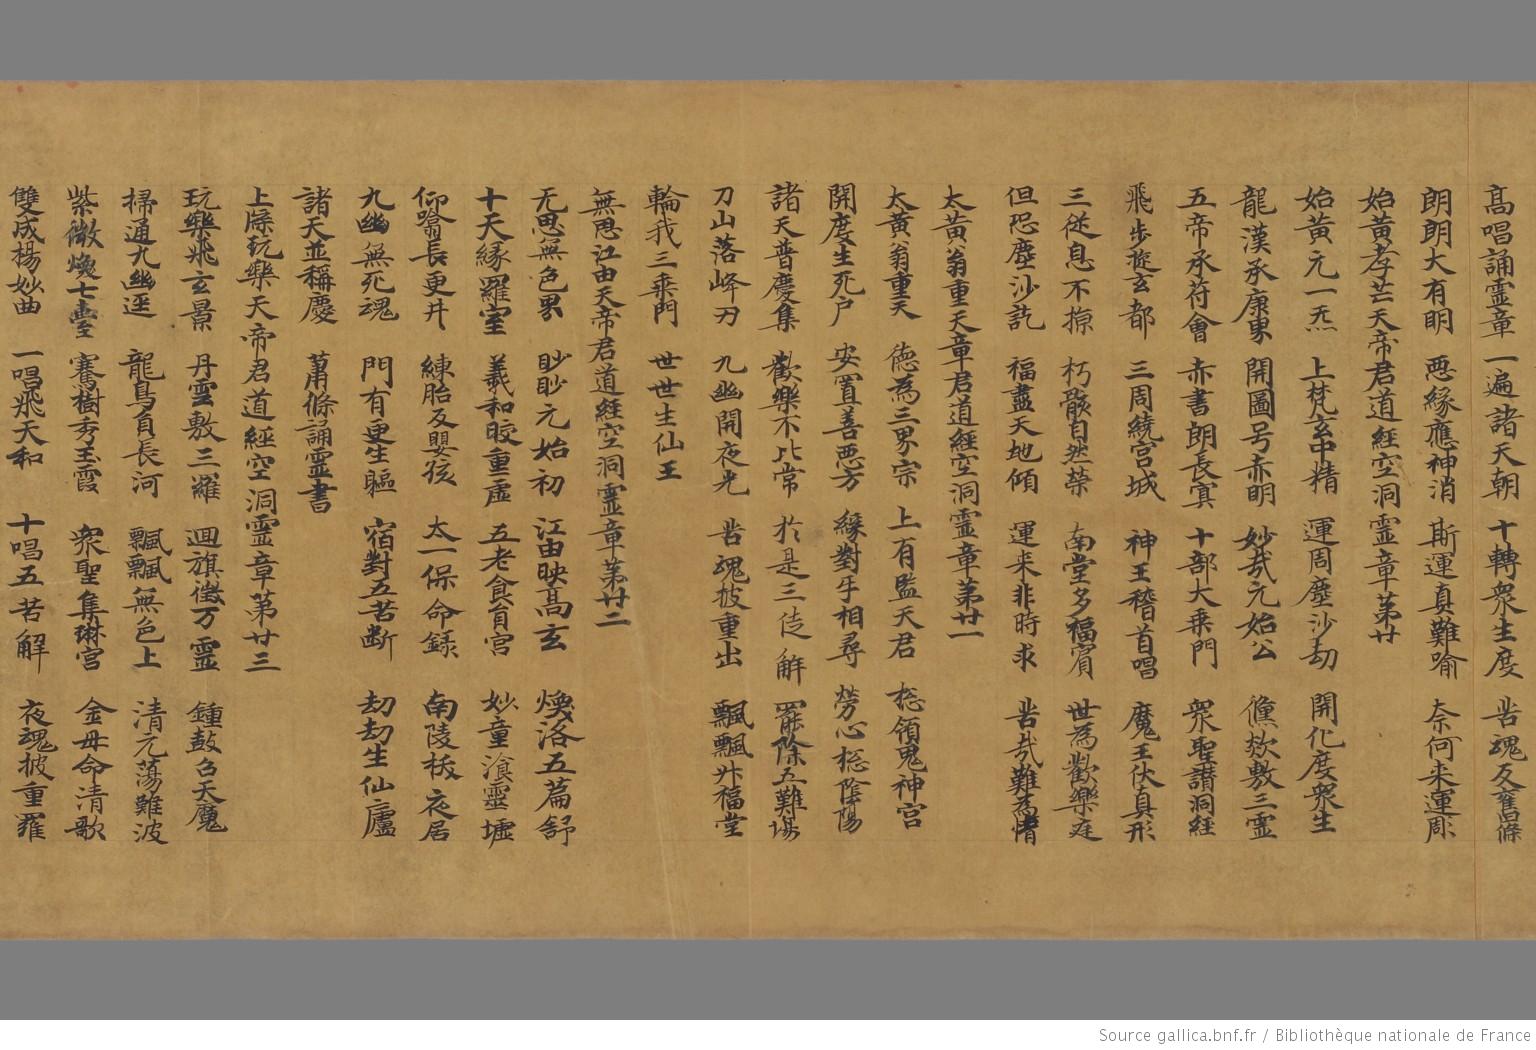 高唱誦靈章 一遍諸天朝 十轉衆生度 苦魂反舊條
朗朗大有明 惡緣應神消 斯運真難喻 奈何来運彫
始黃孝芒天帝君道經空洞靈章第廿
始黃元一炁 上梵玄中精 運周塵沙劫 開化度衆生
龍漢承康東 開圖号赤明 妙哉元始公 儵欻敷三靈
五帝承符會 赤書朗長㝠 十部大乘門 衆聖讃洞經
飛步旋玄都 三周繞宮城 神王稽首唱 魔王伏真形
三從息不掠 朽骸自然榮 南堂多福賔 世為歡樂庭
但恐塵沙訖 福盡天地傾 運来非時求 苦哉難為情
太黃翁重天帝君道經空洞靈章第廿一
太黃翁重天 德為三界宗 上有監天君 捴領鬼神宮
開度生死户 安置善惡方 緣對乎相尋 勞心捴隂陽
諸天普慶集 歡樂不比常 於是三徒解 罷除五難場
刀山落峰刃 九幽開夜光 苦魂披重出 飄飄升福堂
輪我三乘門 世世生仙王
無思江由天帝君道經空洞靈章第廿二
无思無色界 眇眇元始初 江由映高玄 煥洛五篇舒
十天緣羅室 義和晈重虛 五老食自宮 妙童滇靈墟
仰噏長更井 練胎反嬰孩 太一保命録 南陵校衣居
九幽無死魂 門有更生軀 宿對五苦斷 劫劫生仙廬
諸天並稱慶 蕭條誦靈書
上㩉玩樂天帝君道經空洞靈章第廿三
玩樂飛玄景 丹雲敷三羅 迴旗徵万靈 鍾鼓召天魔
掃通九幽逕 龍鳥負長河 飄飄無色上 清元蕩難波
紫微煥七臺 騫樹秀玉霞 衆聖集琳宮 金母命清歌
雙成楊妙曲 一唱飛天和 十唱五苦解 夜魂披重羅
Source gallica.bnf.fr / Bibliothèque nationale de France